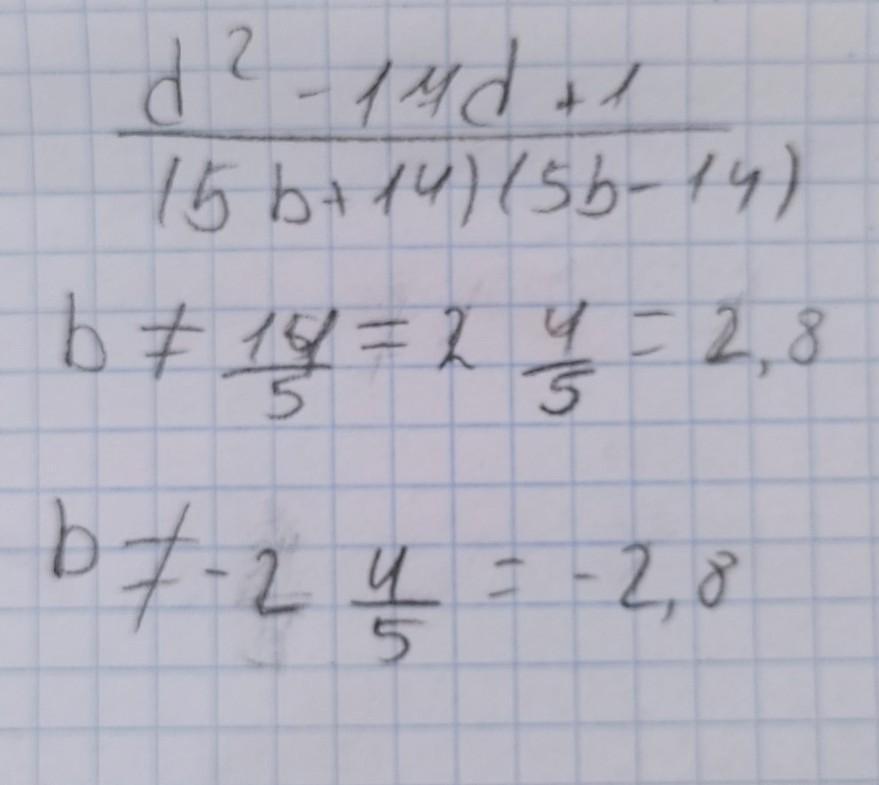 d² - 14d + 1
(5b+14)(5b-14)
b ≠ 14/5 = 2 4/5 = 2,8
b ≠ -2 4/5 = -2,8